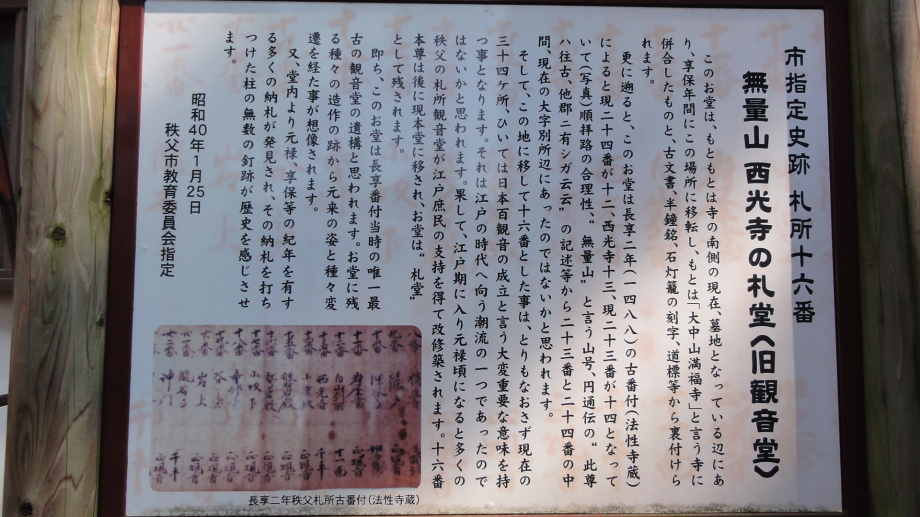 市指定史跡 札所十六番
無量山 西光寺の札堂(旧観音堂)
このお堂は、もともとは寺の南側の現在、墓地となっている辺にあ
り、享保年間にこの場所に移転し、もとは「大中山満福寺」と言う寺に
併合したものと、古文書、半鐘銘、石灯籠の刻字、道標等から裏付けら
れます。
更に遡ると、このお堂は長享二年(一四八八)の古番付(法性寺蔵)
によると現二十四番が十二、西光寺十三、現二十三番が十四となって
いて(写真)順拝路の合理性、"無量山"と言う山号、円通伝の"此尊
ハ往古、他郡二有シガ云云"の記述等から二十三番と二十四番の中
間、現在の大字別所辺にあったのではないかと思われます。
そして、この地に移して十六番とした事は、とりもなおさず現在の
三十四ケ所、ひいては日本百観音の成立と言う大変重要な意味を持
つ事となります。それは江戸の時代へ向う潮流の一つであったので
はないかと思われます。果して、江戸期に入り元禄頃になると多くの
秩父の札所観音堂が江戸庶民の支持を得て改修築されます。十六番
本尊は後に現本堂に移され、お堂は"札堂"
として残されます。
即ち、このお堂は長享番付当時の唯一最
古の観音堂の遺構と思われます。お堂に残
る種々の造作の跡から元来の姿と種々変
遷を経た事が想像されます。
又、堂内より元禄、享保等の紀年を有す
る多くの納札が発見され、その納札を打ち
つけた柱の無数の釘跡が歴史を感じさせ
ます。
昭和40年1月25日
秩父市教育委員会指定
長享二年秩父札所古番付(法性寺蔵)